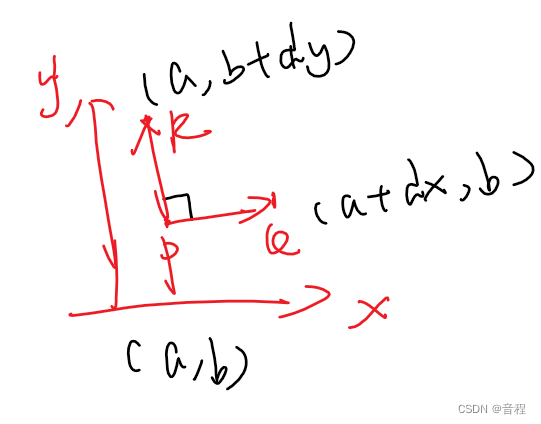 y
(a, b+dy)
R
(a+dx, b)
P
Q
x
(a, b)
CSDN @音程